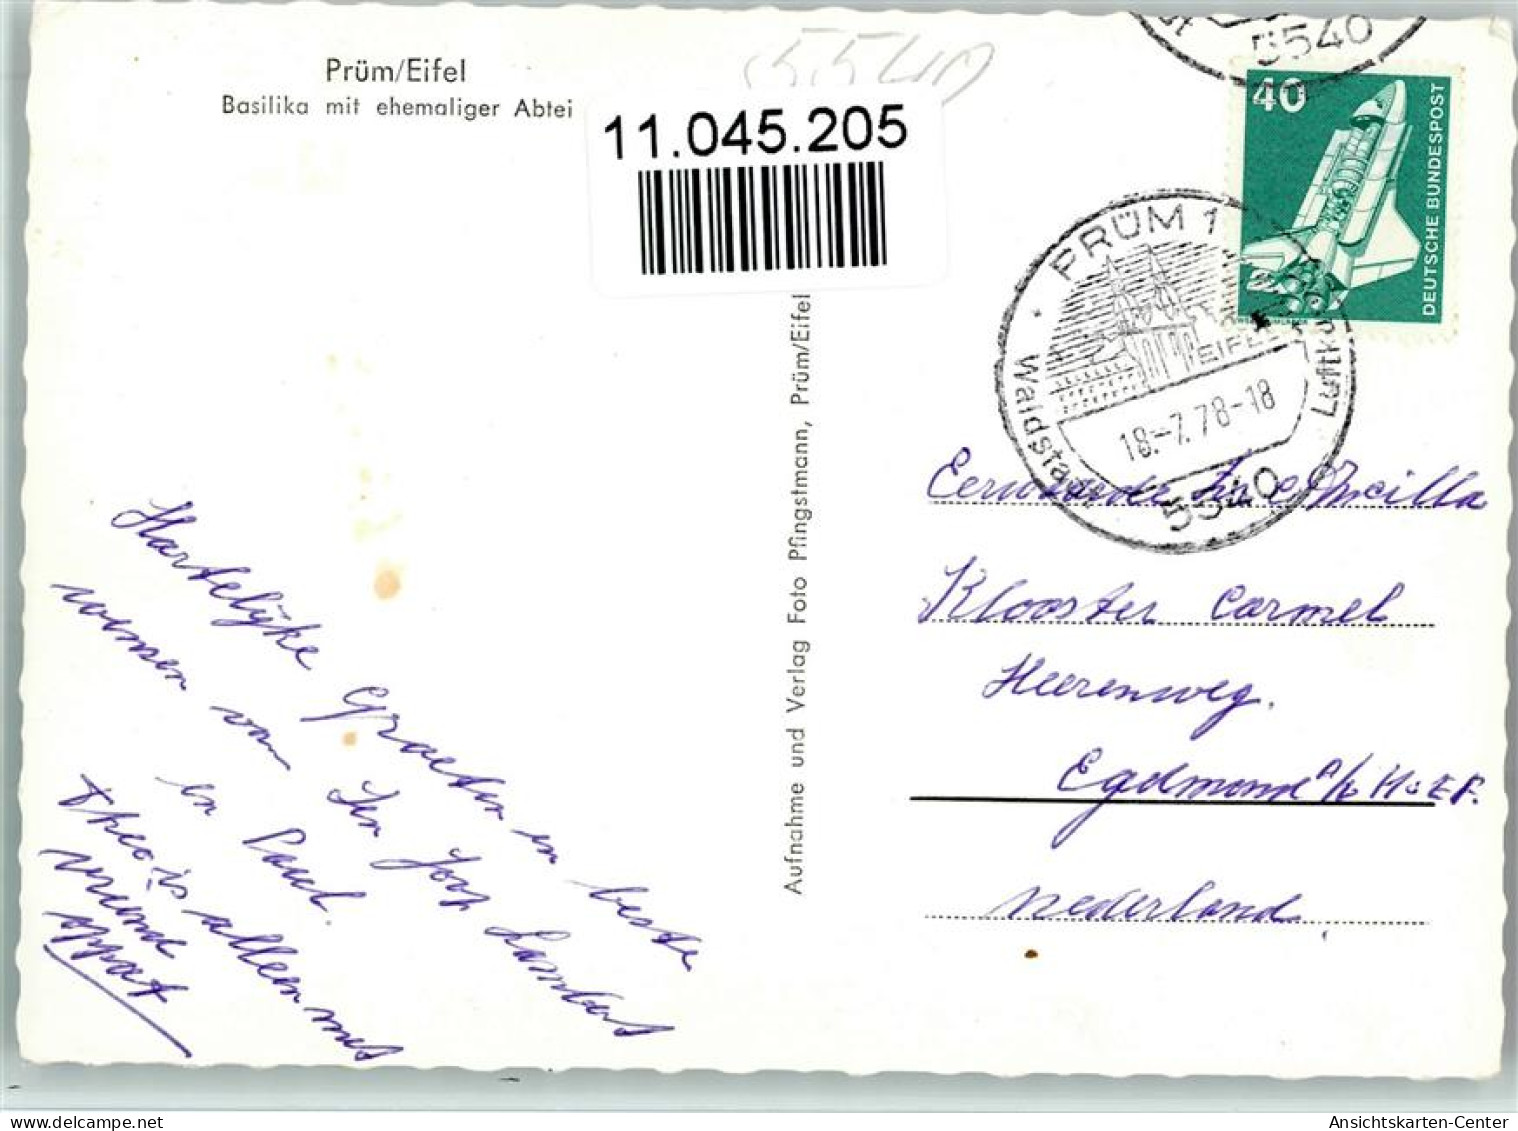 Prüm/Eifel
Basilika mit ehemaliger Abtei
5540
11.045.205
5540
40
DEUTSCHE BUNDESPOST
PRÜM 1
EIFEL
Waldstadt
Luftkurort
18.-7.78-18
5540
Aufnahme und Verlag Foto Pfingstmann, Prüm/Eifel
Hartelijke Groeten en beste
wensen van Fr Jozef Lambert
en Paul.
Theo is alleen met
vriend
op pat
Eerwaarde Zr
Klooster Carmel
Heerenweg.
Egdmond a/h Hoef.
Nederland
Ansichtskarten-Center